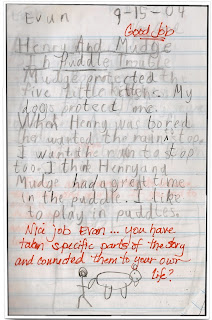 Evan
9-15-04
Good Job
Henry And Mudge
Puddle Trouble
Mudge protected the
five little kittens. My
dogs protect me.
When Henry was bored
he wanted the rain to stop
too. I want the rain to stop
too. I think Henry and
Mudge had a great time
in the puddle. I like
to play in puddles.
Nice job Evan... you have
taken specific parts of the story
and connected them to your own
life!